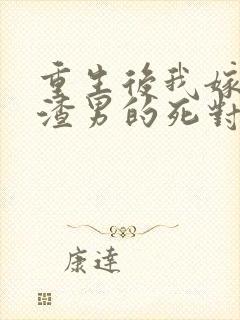 重生後我嫁
渣男的死對
康達